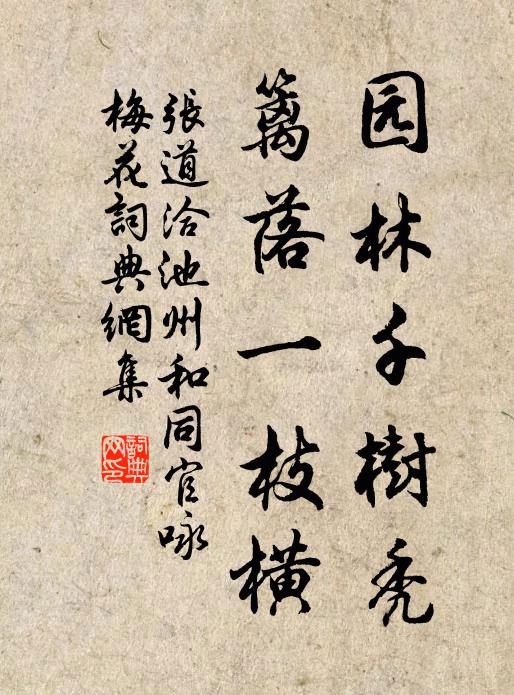 园林千樹禿
篱落一枝橫
張道洽池州和同官咏
梅花詞典網集
詞典网印